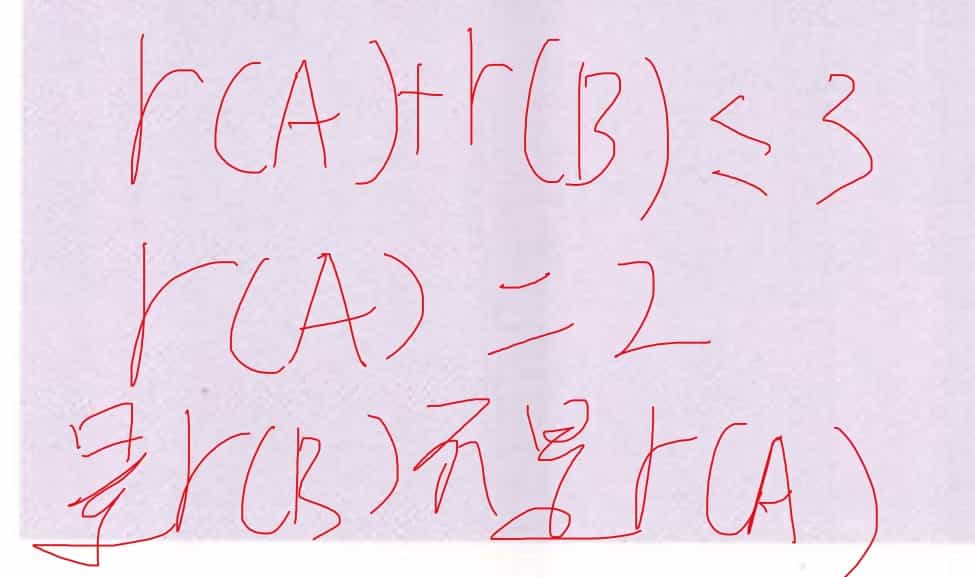 r(A)+r(B)≤3
r(A)=2
是r(B)不是r(A)